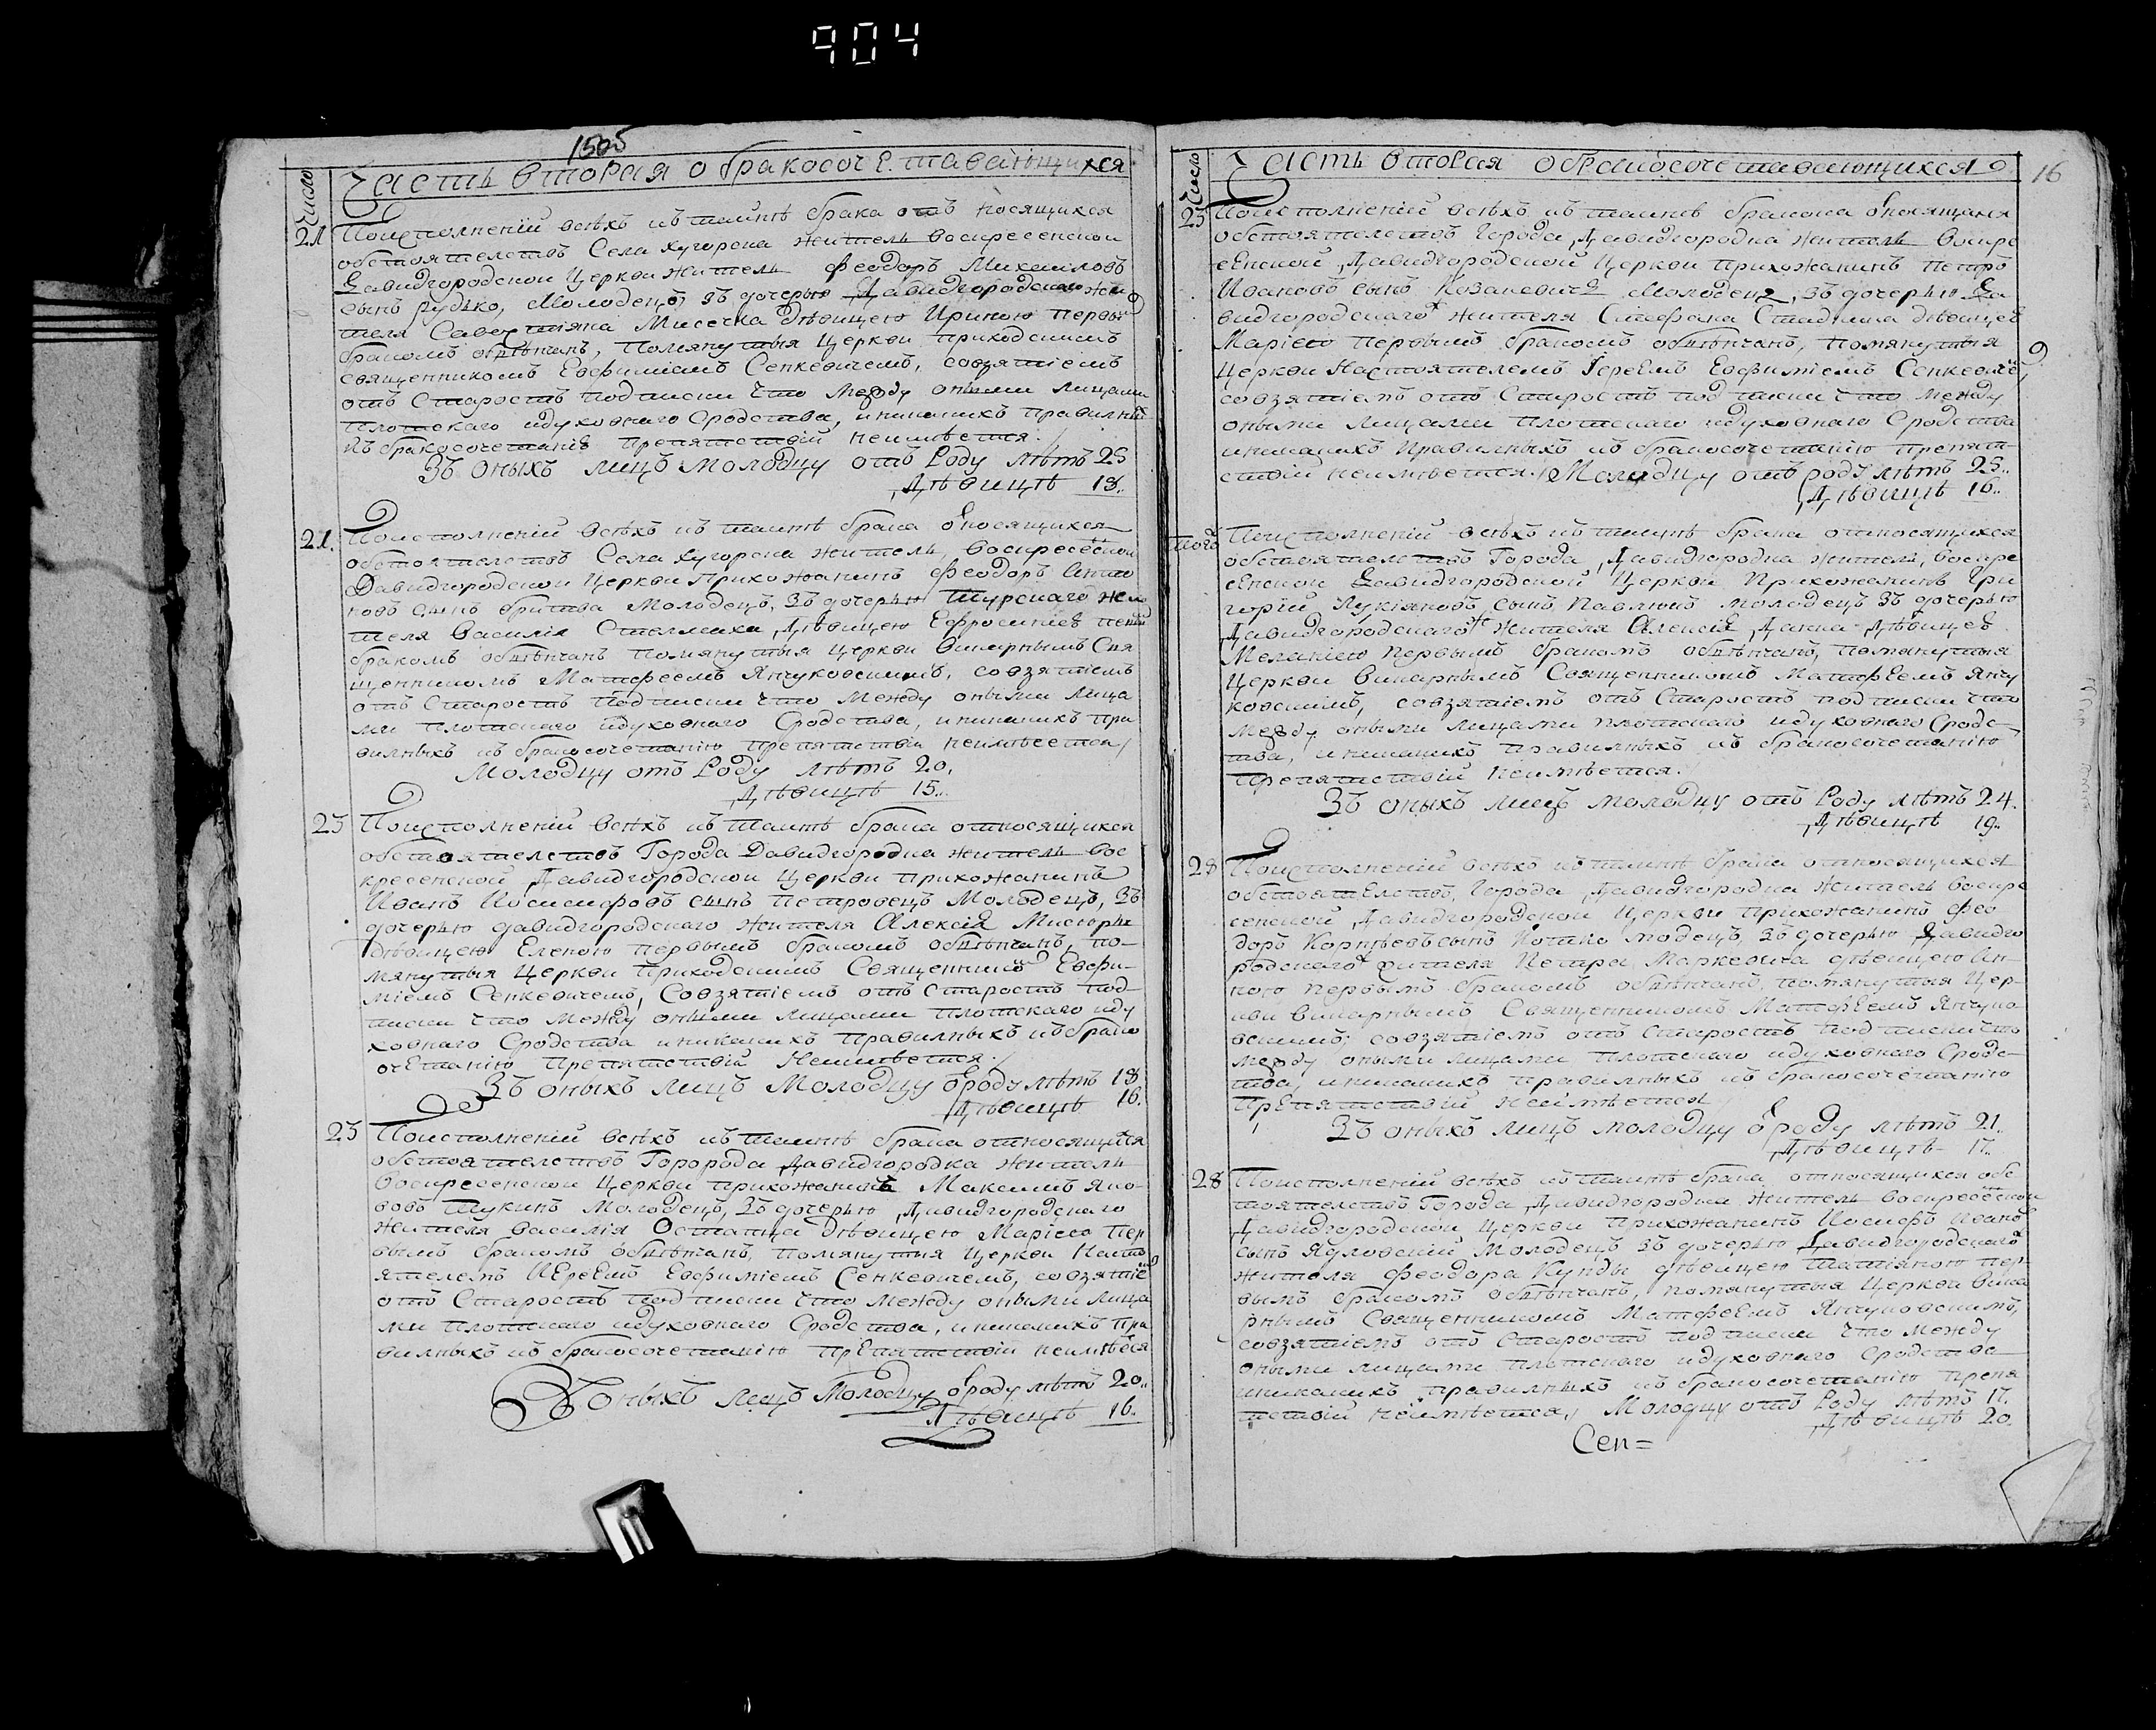 904
1505
Часть вторая о бракосочетавающихся
Число
21
Поисполненій всѣхъ къ таинѣ брака отъ носящихся
обстоятелствъ Села хугорска житель воскресенской
Давидгородской Церкви житель Феодоръ Михайловъ
сынъ рудько, Молодецъ, зъ дочерью Давидгородскаго жи
теля Савостіяна Мисечка дѣвицею Ириною первы
бракомъ обвѣнчанъ, Помянутыя Церкви приходскимъ
священникомъ Евфиміемъ Сенкевичемъ, совзятіемъ
отъ Старостъ подписки что между оными лицами
плотскаго идуховнаго Сродства, иникакихъ правилны
къ бракосочетанію препятствій неимѣется.
Зъ оныхъ лицъ молодцу отъ Роду лѣтъ 23
Дѣвицѣ 18..
21.
Поисполненій всѣхъ къ таинѣ брака относящихся
обстоятелствъ Села хугорска житель, воскресенской
Давидгородской Церкви Прихожанинъ Феодоръ Анто
новъ сынъ бритва Молодецъ, зъ дочерью Турскаго жи
теля василія Стелмаха, Дѣвицею Ефросиніею пер
бракомъ обвѣнчанъ помянутыя Церкви викарнымъ Свя
щенникомъ Матфеемъ Янчуковскимъ, совзятіемъ
отъ Старостъ подписки что между оными лица
ми плотскаго идуховнаго Сродства, иникакихъ пра
вилныхъ къ бракосочетанію препятствій неимѣется
Молодцу отъ Роду лѣтъ 20.
Дѣвицѣ 15..
23
Поисполненій всѣхъ къ таинѣ брака относящихся
обстоятелствъ Города Давидгородка житель вос
кресенской Давидгородской Церкви прихожанинъ
Иванъ Иосифовъ сынъ Петровецъ Молодецъ, зъ
дочерью давидгородскаго жителя Алексія
дѣвицею Еленою первымъ бракомъ обвѣнчанъ, по-
мянутыя Церкви Приходскимъ Священникомъ Евфи-
міемъ Сенкевичемъ, Совзятіемъ отъ Старостъ под-
писки что между оными лицами плотскаго иду
ховнаго Сродства иникакихъ Правилныхъ къ брако
очетанію Препятствій Неимѣется.
Зъ оныхъ лицъ Молодцу ѿроду лѣтъ 18
Дѣвицѣ 16.
23
Поисполненій всѣхъ къ таинѣ брака относящихся
обстоятелствъ Горорода Давидгородка житель
воскресенской Церкви прихожанинъ Максимъ Яко-
вовъ Шукинъ Молодецъ, зъ дочерью Давидгородскаго
жителя василія Осташца Дѣвицею Маріею пер
вымъ бракомъ обвѣнчанъ, помянутыя Церкви Насто
ятелемъ Иереемъ Евфиміемъ Сенкевичемъ, совзятіе
отъ Старостъ подписки что между оными лица
ми плотскаго идуховнаго Сродства, иникакихъ пра
вилныхъ къ бракосочетанію препятствій неимѣеся
Зъ оныхъ лицъ Молодцу ѿроду лѣтъ 20..
Дѣвицѣ 16.
Часть вторая о бракосочетавающихся
16
Число
23
Поисполненій всѣхъ къ таинѣ брака относящихся
обстоятелствъ Города Давидгородка житель воскре
сенской Давидгородской Церкви прихожанинъ Петръ
Ивановъ сынъ Козакевичъ Молодецъ, зъ дочерью Да
видгородскаго жителя Стефана дѣвицею
Маріею первымъ бракомъ обвѣнчанъ, помянутыя
Церкви Настоятелемъ Іереемъ Евфиміемъ Сенкевиче,
совзятіемъ отъ Старостъ подписки что между
оными лицами плотскаго идуховнаго Сродства
иникакихъ Правилныхъ къ бракосочетанію препят
ствій неимѣется. Молодцу отъ роду лѣтъ 23..
Дѣвицѣ 16..
того
Поисполненій всѣхъ къ таинѣ брака относящихся
обстоятелствъ Города Давидгородка житель, воскре
сенской Давидгородской Церкви Прихожанинъ Гри
горій Лукіяновъ сынъ Павлюкъ молодецъ зъ дочерью
Давидгородскаго жителя Алексія Данка Дѣвицею
Меланіею первымъ бракомъ обвѣнчанъ, помянутыя
Церкви викарнымъ Священникомъ Матфеемъ Янчу
ковскимъ, совзятіемъ отъ Старостъ подписки что
между оными лицами плотскаго идуховнаго Сродс-
тва, иникакихъ правилныхъ къ бракосочетанію
препятствій неимѣется.
Зъ оныхъ лицъ молодцу отъ Роду лѣтъ 24.
Дѣвицѣ 19..
28
Поисполненій всѣхъ къ таинѣ брака относящихся
обстоятелствъ, Города Давидгородка житель воскре
сенской Давидгородской Церкви прихожанинъ Фео
доръ Корнѣевъ сынъ модецъ, зъ дочерью Давидго
родскаго жителя Петра Маркевича дѣвицею Ан-
ною первымъ бракомъ обвѣнчанъ, помянутыя Цер-
кви викарнымъ Священникомъ Матфеемъ Янчуко
вскимъ, совзятіемъ отъ Старостъ подписки что
между оными лицами плотскаго идуховнаго Сродс-
тва, иникакихъ правилныхъ къ бракосочетанію
препятствій неимѣется
Зъ оныхъ лицъ молодцу ѿроду лѣтъ 21.
Дѣвицѣ 17..
28
Поисполненій всѣхъ къ таинѣ брака относящихся обс
тоятелствъ Города Давидгородка житель воскресенской
Давидгородской Церкви прихожанинъ Иосифъ Иванъ
сынъ Ядловскій Молодецъ зъ дочерью Давидгородскаго
жителя Феодора Кунды дѣвицею Татіяною пер-
вымъ бракомъ обвѣнчанъ, помянутыя Церкви вика
рнымъ Священникомъ Матфеемъ Янчуковскимъ,
совзятіемъ отъ Старостъ подписки что между
оными лицами плотскаго идуховнаго сродства
иникакихъ правилныхъ къ бракосочетанію препя
тствій неимѣется, Молодцу отъ Роду лѣтъ 17.
Дѣвицѣ 20.
Сен=